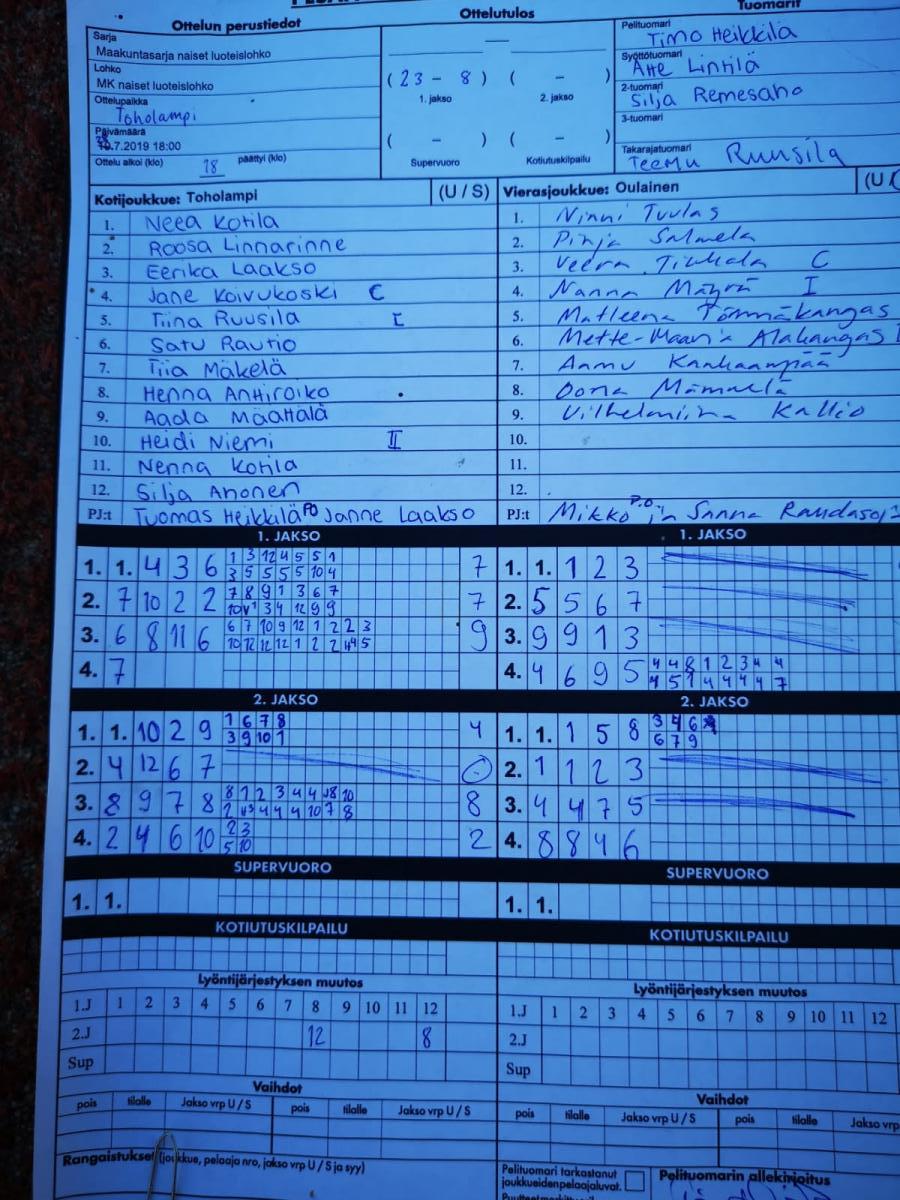 Ottelun perustiedot
Ottelutulos
Tuomarit
Sarja
Maakuntasarja naiset luoteislohko
Lohko
MK naiset luoteislohko
Ottelupaikka
Toholampi
Päivämäärä
.7.2019 18:00
Ottelu alkoi (klo) 18 päättyi (klo)
( 23 - 8 ) ( - )
1. jakso 2. jakso
( - ) ( - )
Supervuoro Kotiutuskilpailu
Pelituomari
Timo Heikkilä
Syöttötuomari
Atte Lintilä
2-tuomari
Silja Remesaho
3-tuomari
Takarajatuomari
Teemu Ruusila
Kotijoukkue: Toholampi (U / S)
1. Neea Kotila
2. Roosa Linnarinne
3. Eerika Laakso
4. Jane Koivukoski C
5. Tiina Ruusila I
6. Satu Rautio
7. Tiia Mäkelä
8. Henna Anttiroiko
9. Aada Määttälä
10. Heidi Niemi II
11. Nenna Kotila
12. Silja Ahonen
PJ:t Tuomas Heikkilä PO Janne Laakso
Vierasjoukkue: Oulainen (U /
1. Ninni Tuulas
2. Pinja Salmela
3. Veera Tikkala C
4. Nanna Mäyrä I
5. Matleena Tömmäkangas
6. Mette-Maaria Alakangas
7. Aamu Kankaanpää
8. Oona Mämmelä
9. Vilhelmiina Kallio
10.
11.
12.
PJ:t Mikko P.O. ja Sanna
1. JAKSO
1. 1. 4 3 6 1 3 12 4 5 5 1 7
3 5 5 5 5 10 4
2. 7 10 2 2 7 8 9 1 3 6 7 7
3 4 12 9 9
3. 6 8 11 6 6 7 10 9 12 1 2 2 3 9
10 12 12 12 1 2 2 4 5
4. 7
1. JAKSO
1. 1. 1 2 3
2. 5 5 6 7
3. 9 9 1 3
4. 4 6 9 5 4 4 8 1 2 3 4 4
4 5 1 4 4 4 4 7
2. JAKSO
1. 1. 10 2 9 1 6 7 8 4
3 9 10 1
2. 4 12 6 7 0
3. 8 9 7 8 8 1 2 3 4 4 8 10 8
2 4 4 4 10 7 8
4. 2 4 6 10 2 3 2
5 10
2. JAKSO
1. 1. 1 5 8 3 4 6
6 7 9
2. 1 1 2 3
3. 4 4 7 5
4. 8 8 4 6
SUPERVUORO
1. 1.
SUPERVUORO
1. 1.
KOTIUTUSKILPAILU
KOTIUTUSKILPAILU
Lyöntijärjestyksen muutos
1.J 1 2 3 4 5 6 7 8 9 10 11 12
2.J 12 8
Sup
Lyöntijärjestyksen muutos
1.J 1 2 3 4 5 6 7 8 9 10 11 12
2.J
Sup
Vaihdot
pois tilalle Jakso vrp U / S pois tilalle Jakso vrp U / S
Vaihdot
pois tilalle Jakso vrp U / S pois tilalle Jakso vrp
Rangaistukset (joukkue, pelaaja nro, jakso vrp U / S ja syy)
Pelituomari tarkastanut
joukkueidenpelaajaluvat.
Pelituomarin allekirjoitus